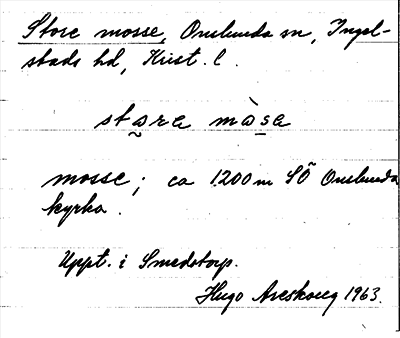 Store mosse, Onslunda sn, Ingel-
stads hd, Krist. l.
stara màsa
mosse; ca 1200 m SÖ Onslunda
kyrka.
Uppt. i Smedstorp.
Hugo Areskoug 1963.